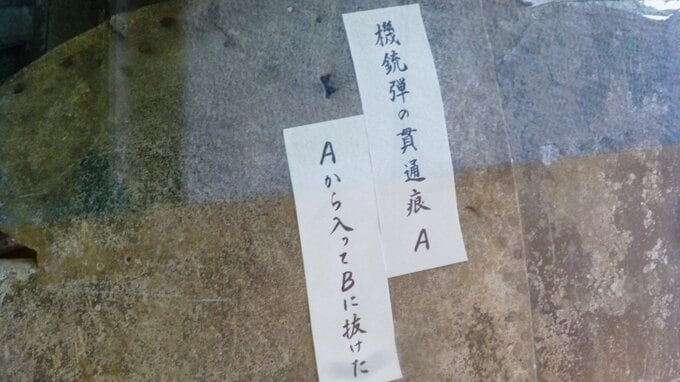 機銃弾の貫通痕 A
Aから入ってBに抜けた